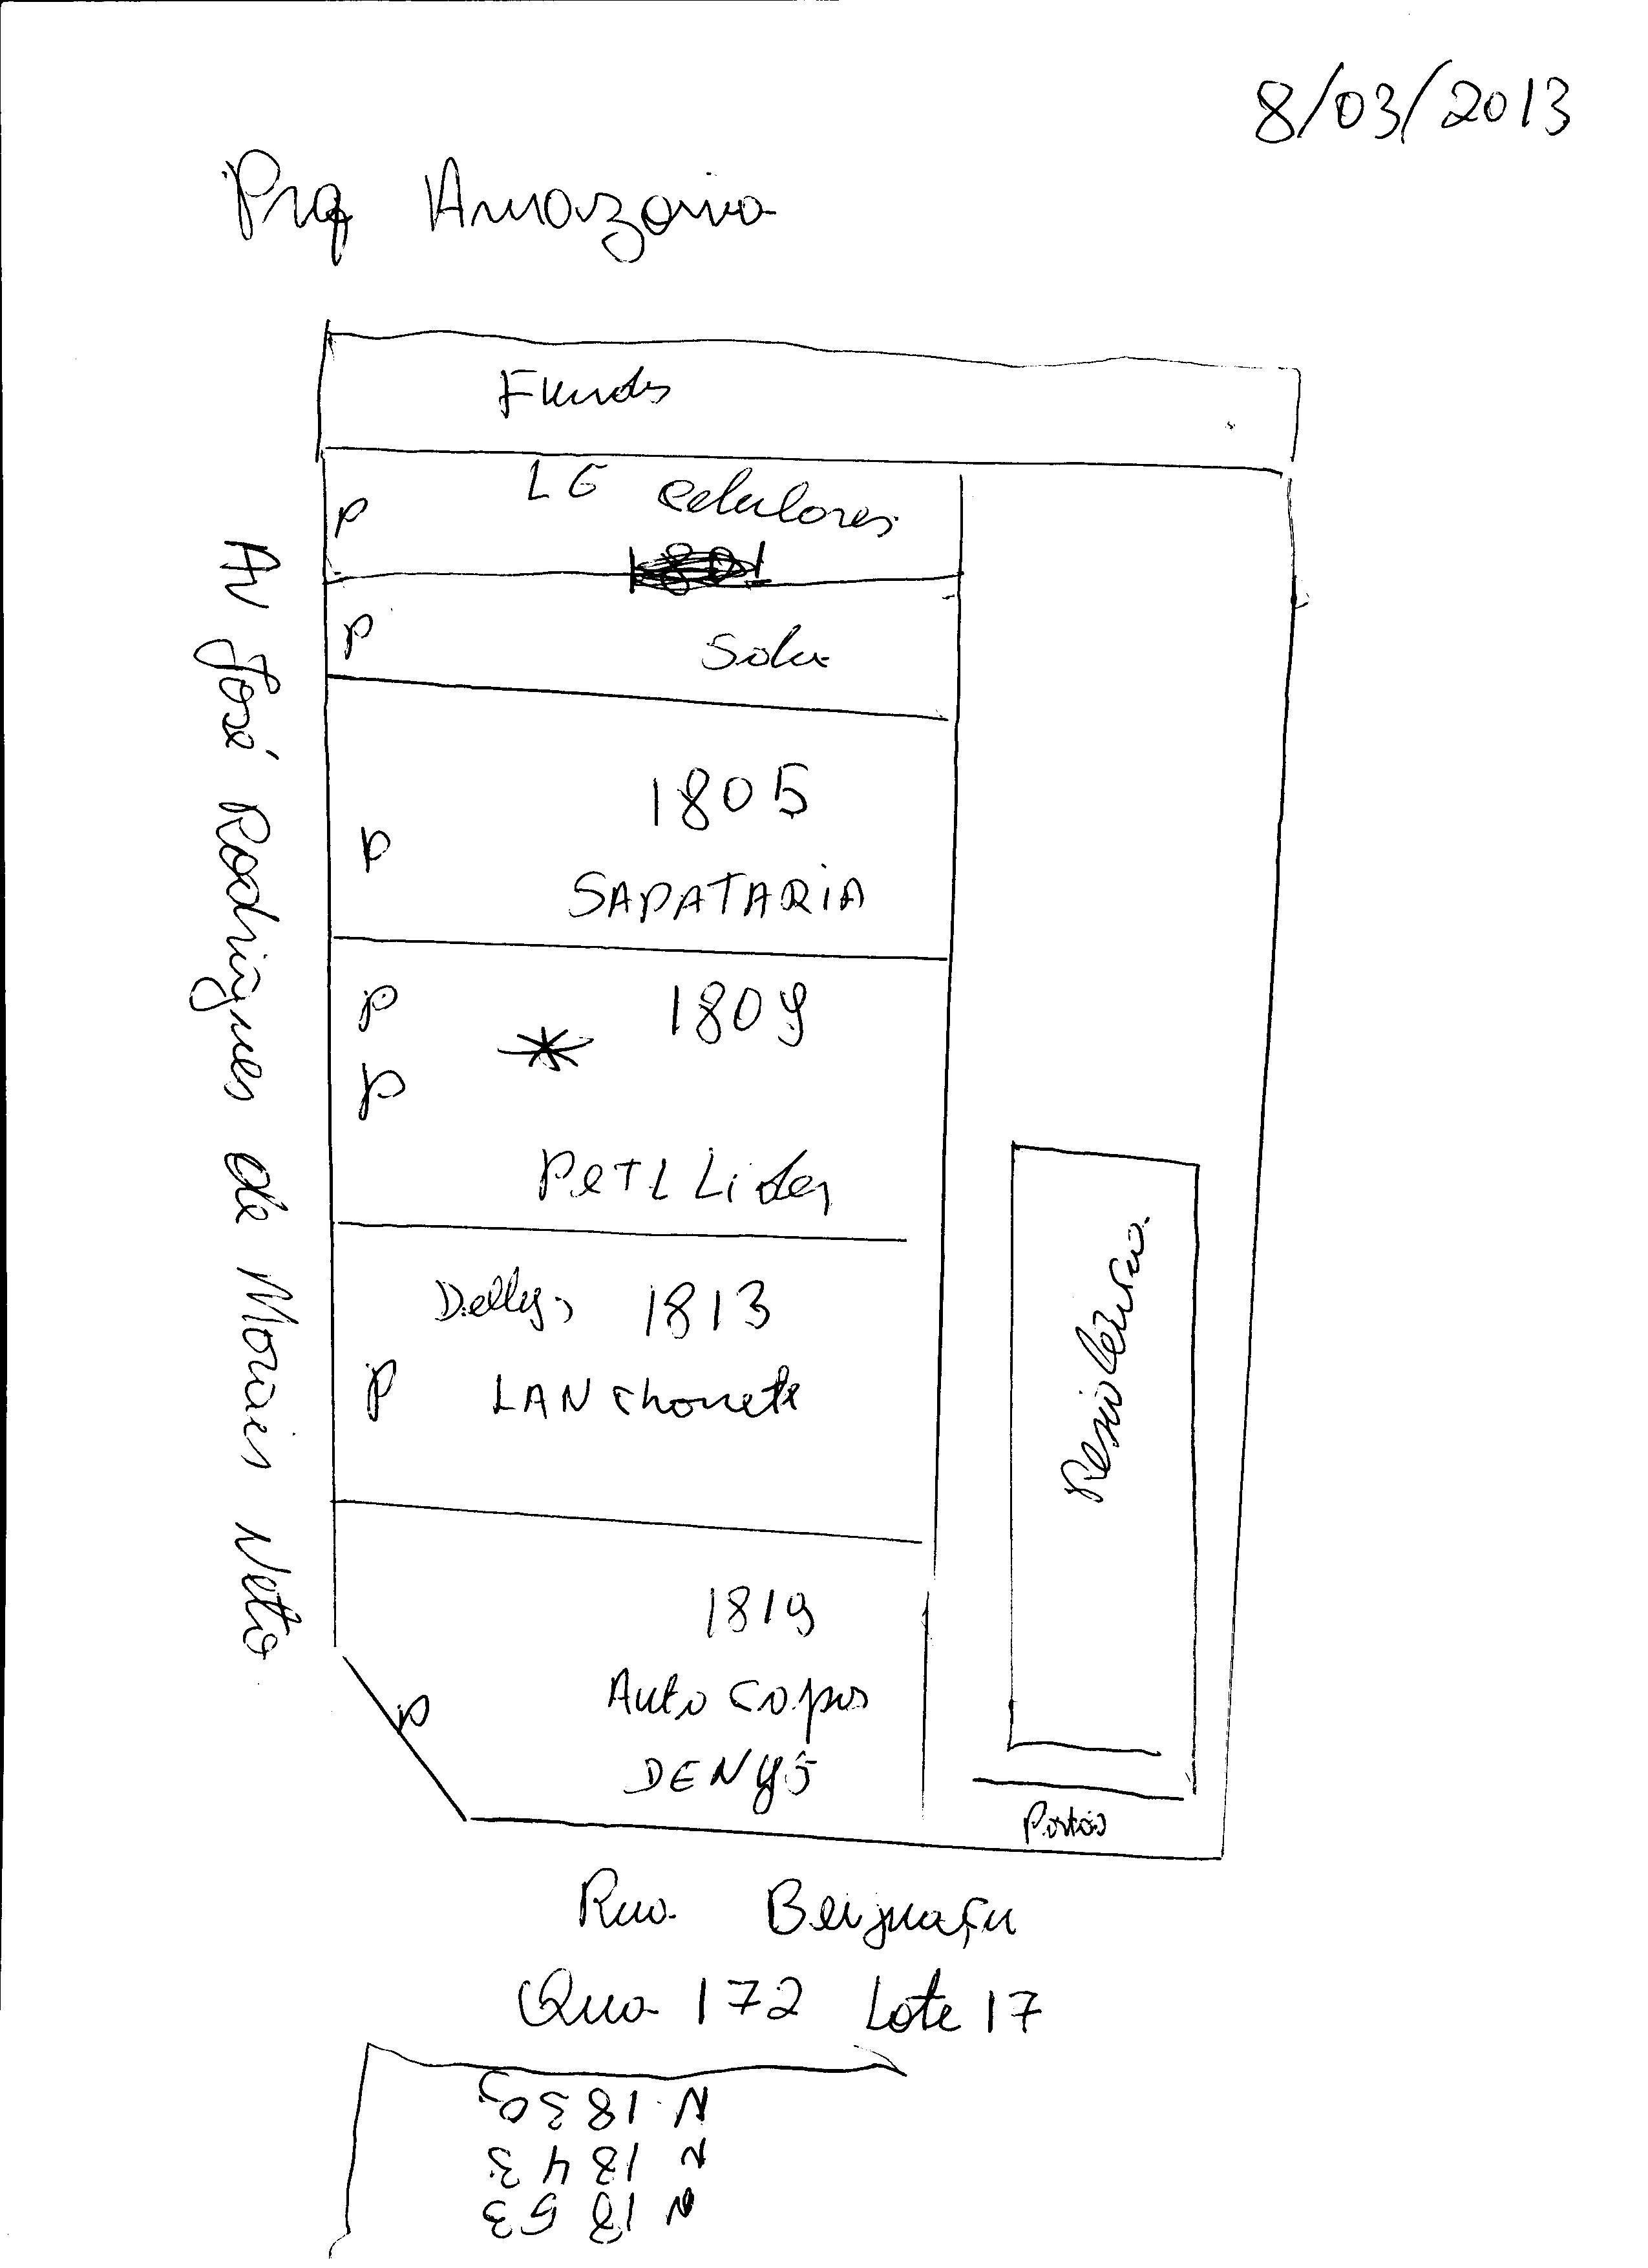 8/03/2013
Prq Amazonia
Fundos
LG celulares
P
P
Sala
1805
P
SAPATARIA
P
1809
P
Pet L Lider
Dellys 1813
P
LANchonete
1819
Auto Capas
P
DENYS
Av José Rodrigues de Morais Neto
Residencia
Portão
Rua Beijuaçu
Qua 172 Lote 17
N 1853
N 1843
N 1839